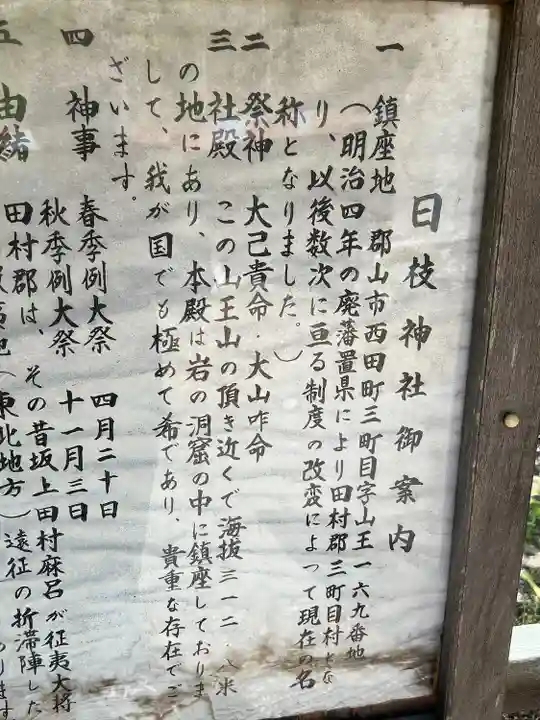 日枝神社御案内
一 鎮座地 郡山市西田町三町目字山王一六九番地
（明治四年の廃藩置県により田村郡三町目村とな
り、以後数次に亘る制度の改変によって現在の名
称となりました。）
二 祭神 大己貴命・大山咋命
三 社殿 この山王山の頂き近くで海抜三一二．八米
の地にあり、本殿は岩の洞窟の中に鎮座しておりま
して、我が国でも極めて希であり、貴重な存在でご
ざいます。
四 神事 春季例大祭 四月二十日
秋季例大祭 十一月三日
五 由緒 田村郡は、その昔坂上田村麻呂が征夷大将
（東北地方）遠征の折滞陣した